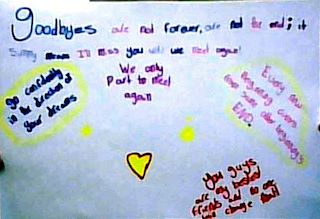 Goodbyes are not forever, are not the end; it
Simply means I'll miss you until we meet again!
We only
Part to meet
again
Go confidently
in the direction of
your dreams
Every new
beginning comes
from some other beginning's
END.
You guys
are my bested
friends and no one
can change that!